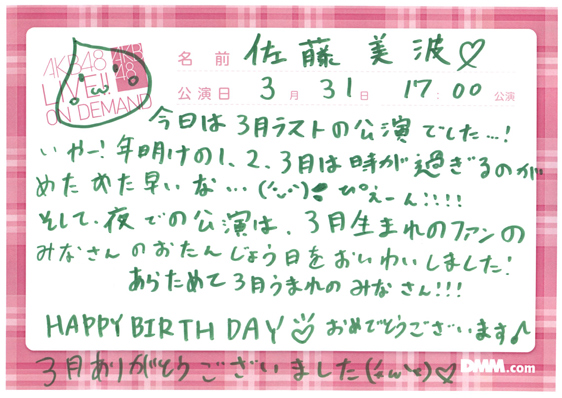 AKB48
LIVE!!
ON DEMAND
AKB
48
名前 佐藤美波♡
公演日 3月31日 17:00 公演
今日は3月ラストの公演でした…!
いやー!年明けの1、2、3月は時が過ぎるのが
めためた早いな… ぴえーん!!!!
そして、夜での公演は、3月生まれのファンの
みなさんのおたんじょう日をおいわいしました!
あらためて3月うまれのみなさん!!!
HAPPY BIRTH DAY♡ おめでとうございます♪
3月ありがとうございました(*>ω<*)♡
DMM.com